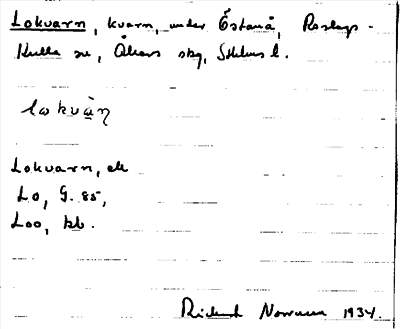 Lokvarn, kvarn, under Östanå, Roslags-
Kulla sn, Åkers skg, Sthlms l.
lωkvὰη
Lokvarn, ek
Lo, G. 85,
Loo, kb.
1934.